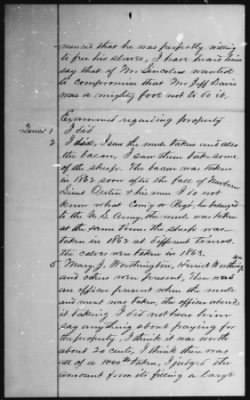 menced that he was perfectly willing
to free his slaves, I have heard him
say that if Mr Lincoln wanted
to compromise that Mr Jeff Davis
was a mighty fool not to do it.
Examined regarding property
1 I did
2. I did, I saw the mule taken and also
the bacon, I saw them take some
of the sheep. The bacon was taken
in 1862 soon after the fall of
& his men I do not
know what Com'y or Regt, he belonged
to the U.S. Army, the mule was taken
at the same time, the sheep was
taken in 1862 at different times.
The were taken in 1863.
5 Mary J. Worthington, Harriet Worthington
and others was present, There was
an officer present when the mule
and meat was taken, the officer ordered
it taking I did not hear him
say anything about paying for
the property, I think it was worth
about 20 cents, I think there was
all of a 1000 lbs taken, I judged the
amount from its filling a large